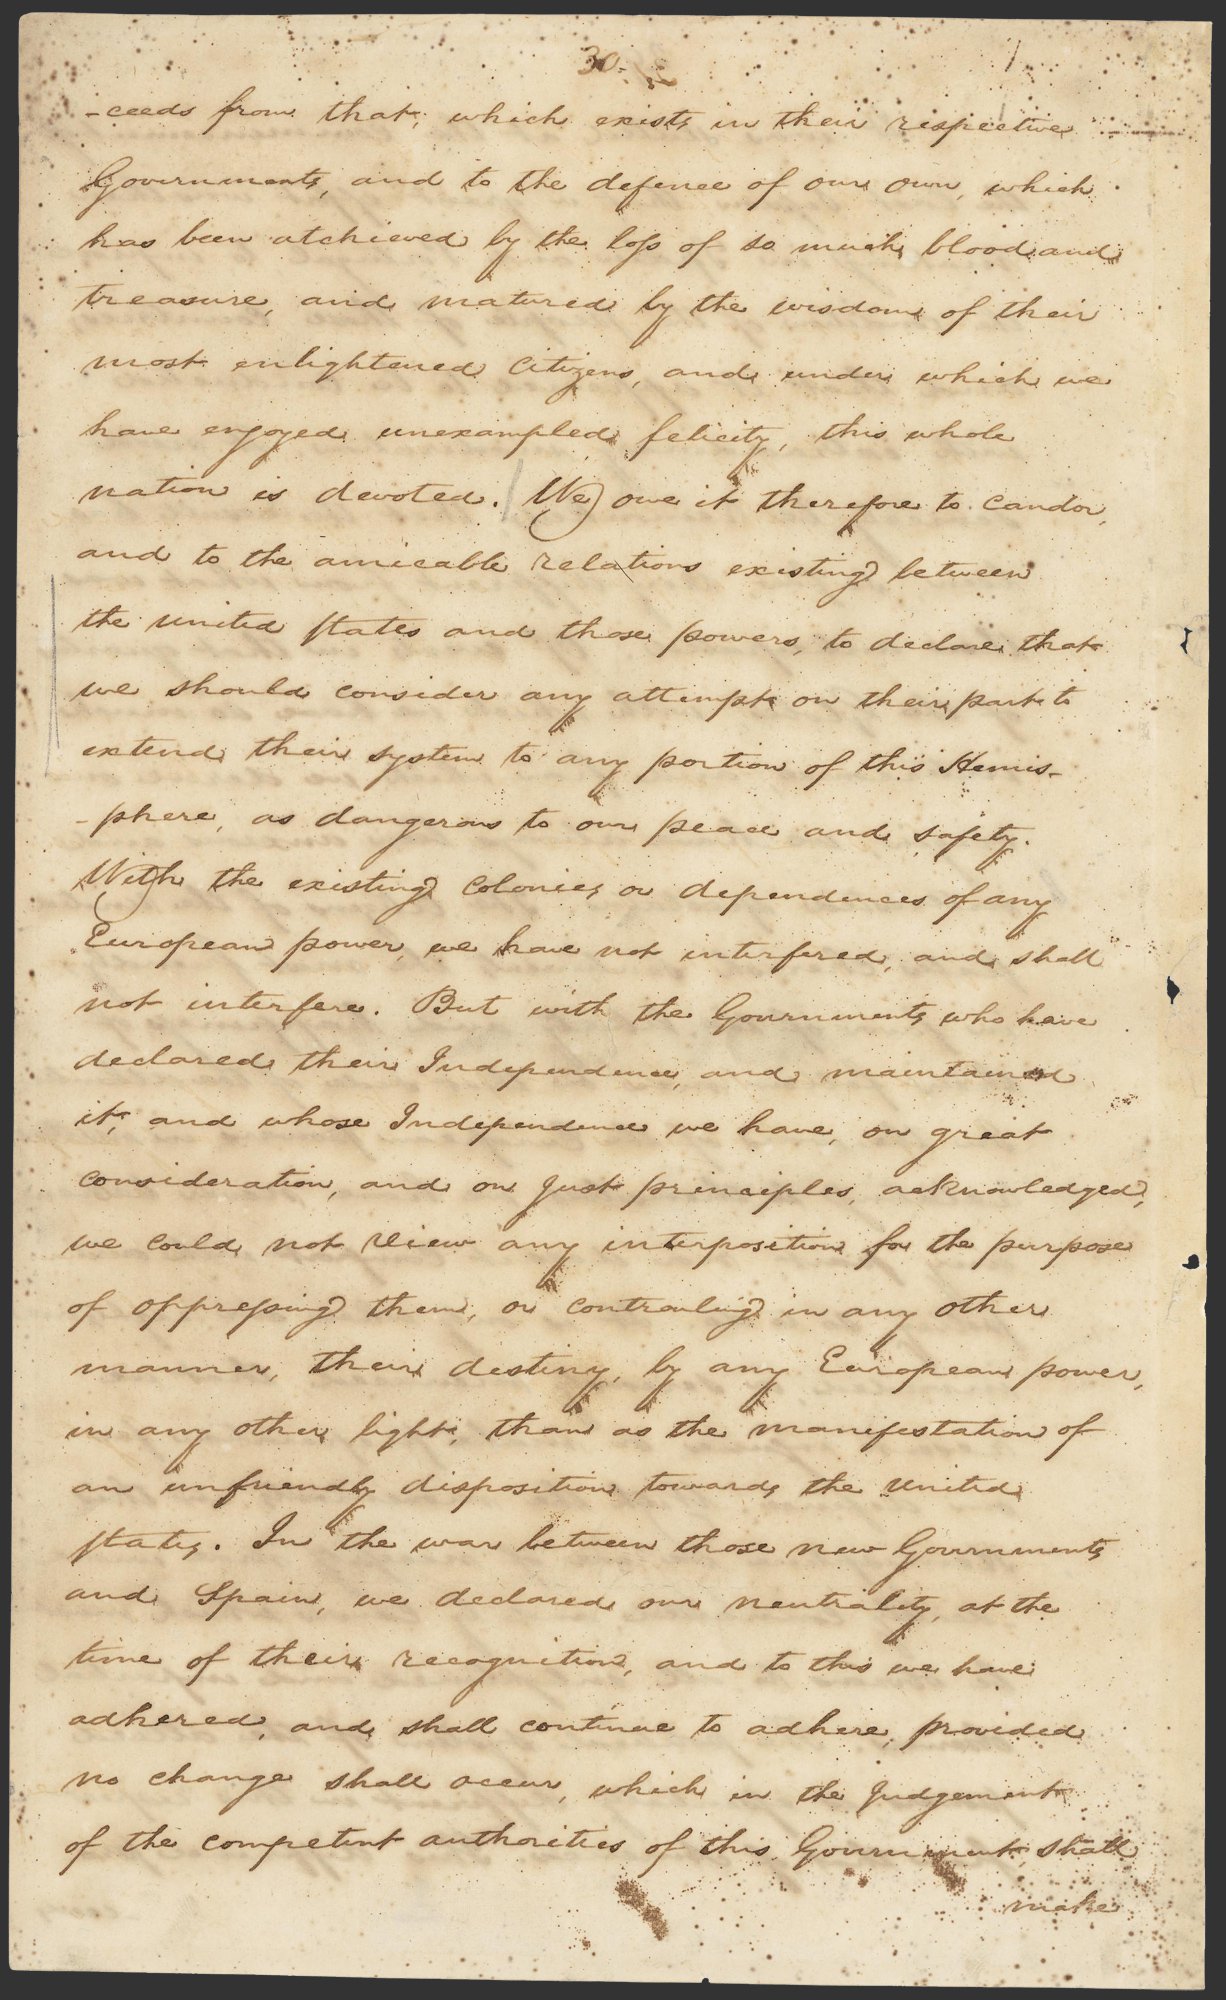 30.
-ceeds from that, which exists in their respective
Governments, and to the defence of our own, which
has been atchieved by the loss of so much blood and
treasure, and matured by the wisdom of their
most enlightened Citizens, and under which we
have enjoyed unexampled felicity, this whole
nation is devoted. We owe it therefore to candor,
and to the amicable relations existing between
the United States and those powers, to declare that
we should consider any attempt on their part to
extend their system to any portion of this Hemis-
-phere, as dangerous to our peace and safety.
With the existing Colonies or dependences of any
European power, we have not interfered, and shall
not interfere. But with the Governments who have
declared their Independence, and maintained
it, and whose Independence we have, on great
consideration, and on just principles, acknowledged,
we could not view any interposition for the purpose
of oppressing them, or controuling in any other
manner, their destiny, by any European power,
in any other light, than as the manifestation of
an unfriendly disposition towards the United
States. In the war between those new Governments
and Spain, we declared our neutrality, at the
time of their recognition, and to this we have
adhered, and shall continue to adhere, provided
no change shall occur, which in the judgement
of the competent authorities of this Government, shall
make